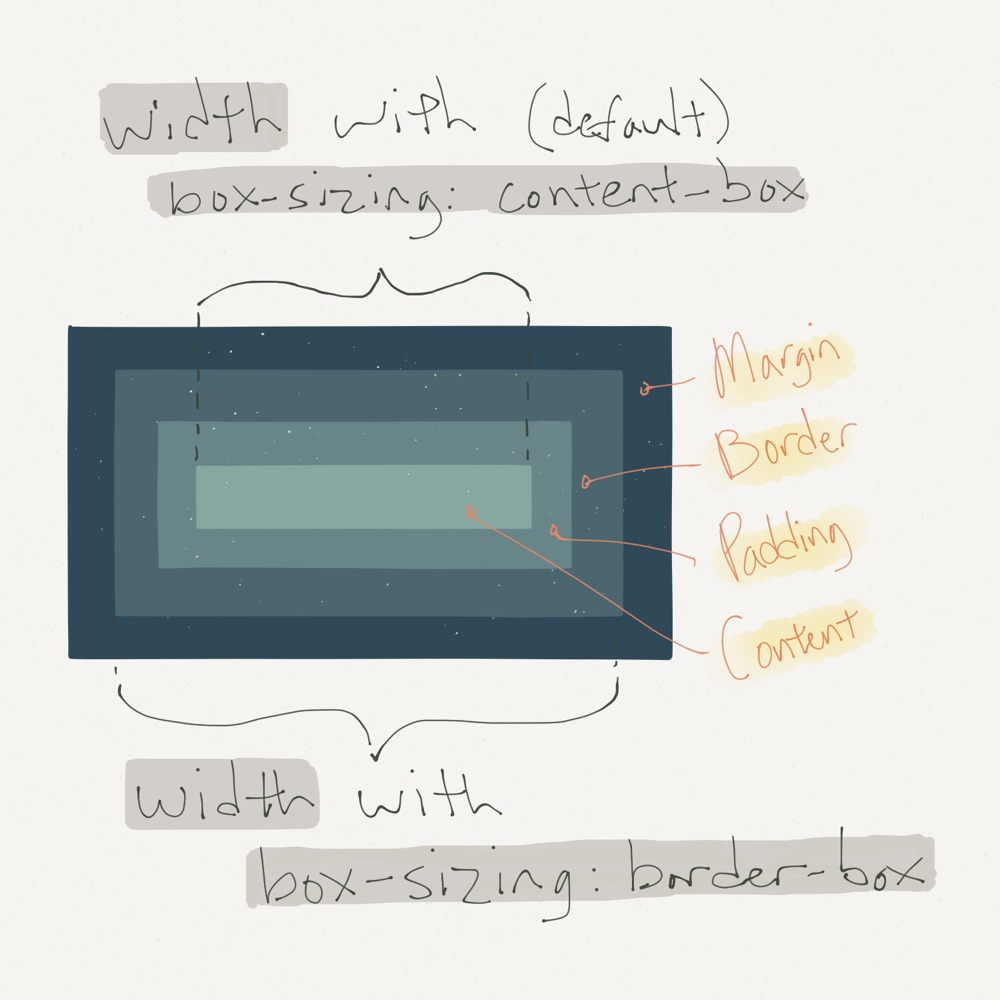 width with (default)
box-sizing: content-box
Margin
Border
Padding
Content
width with
box-sizing: border-box